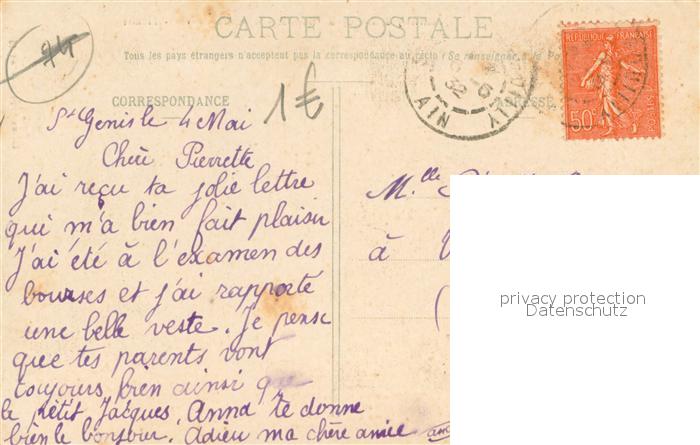 74
CARTE POSTALE
Tous les pays étrangers n'acceptent pas la correspondance au recto (Se renseigner à la
CORRESPONDANCE
1€
ADRESSE
REPUBLIQUE FRANÇAISE
50c
AIN
32
St Genis le 4 Mai
Chère Pierrette
J'ai reçu ta jolie lettre
qui m'a bien fait plaisir
J'ai été à l'examen des
bourses et j'ai rapporté
une belle veste. Je pense
que tes parents vont
toujours bien ainsi que
le petit Jacques. Anna te donne
bien le bonjour. Adieu ma chère amie
M.lle
à
privacy protection
Datenschutz